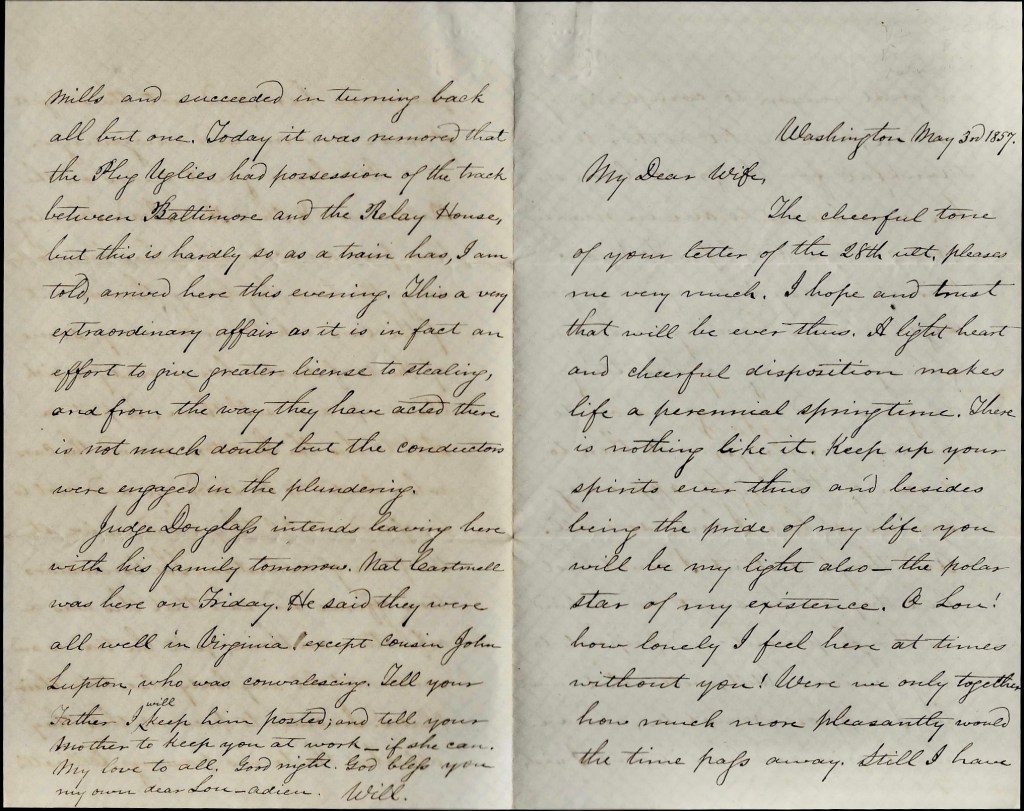 mills and succeeded in turning back
all but one. Today it was rumored that
the Plug Uglies had possession of the track
between Baltimore and the Relay House,
but this is hardly so as a train has, I am
told, arrived here this evening. This a very
extraordinary affair as it is in fact an
effort to give greater license to stealing,
and from the way they have acted there
is not much doubt but the conductors
were engaged in the plundering.
Judge Douglass intends leaving here
with his family tomorrow. Nat Cartmell
was here on Friday. He said they were
all well in Virginia except cousin John
Lupton, who was convalescing. Tell your
Father I will keep him posted; and tell your
Mother to keep you at work – if she can.
My love to all. Good night. God bless you
my own dear Lou – adieu. Will.
Washington May 3rd 1857.
My Dear Wife,
The cheerful tone
of your letter of the 28th ult. pleases
me very much. I hope and trust
that will be ever thus. A light heart
and cheerful disposition makes
life a perennial springtime. There
is nothing like it. Keep up your
spirits ever thus and besides
being the pride of my life you
will be my light also – the polar
star of my existence. O Lou!
how lonely I feel here at times
without you! Were we only together
how much more pleasantly would
the time pass away. Still I have